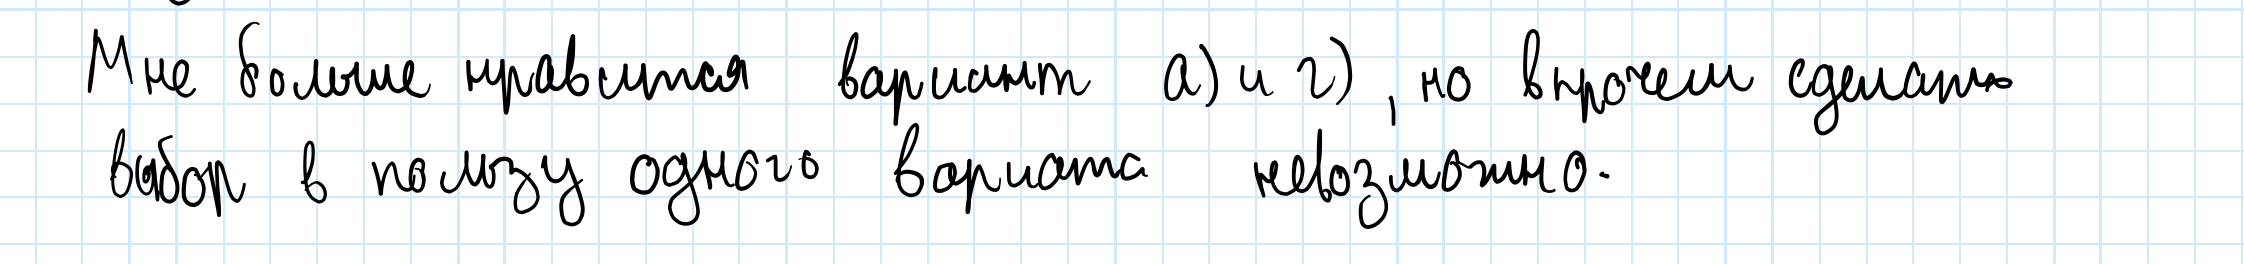 Мне больше нравится вариант а) и г), но впрочем сделать
выбор в пользу одного вариата невозможно.